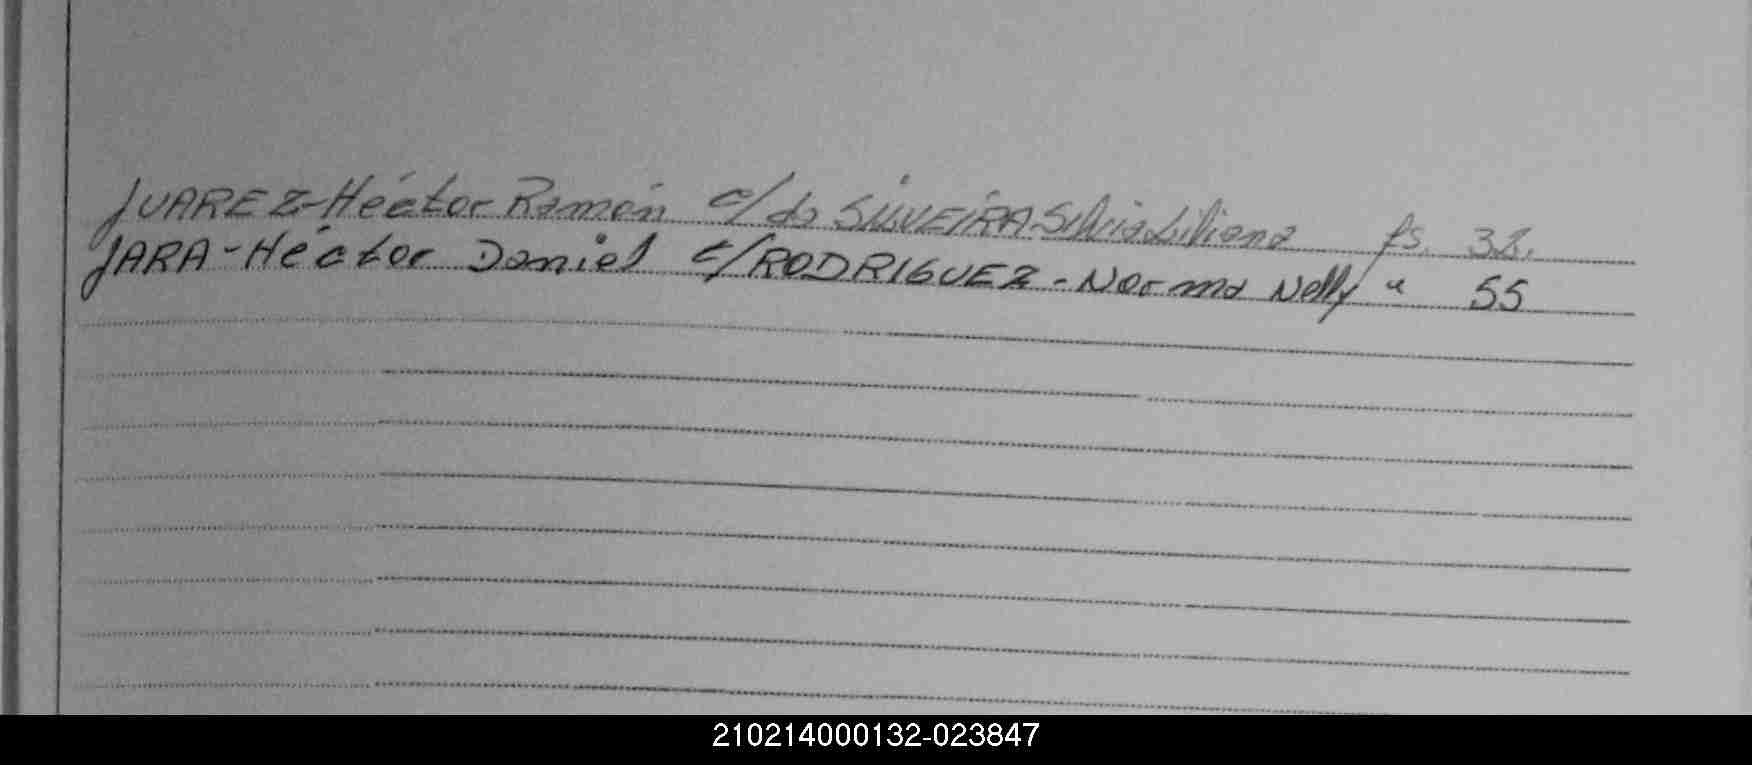 JUAREZ-Héctor Ramón c/da SILVEIRA Silvia Liliana fs. 32.
JARA-Héctor Daniel c/RODRIGUEZ-Norma Nelly " 55
210214000132-023847